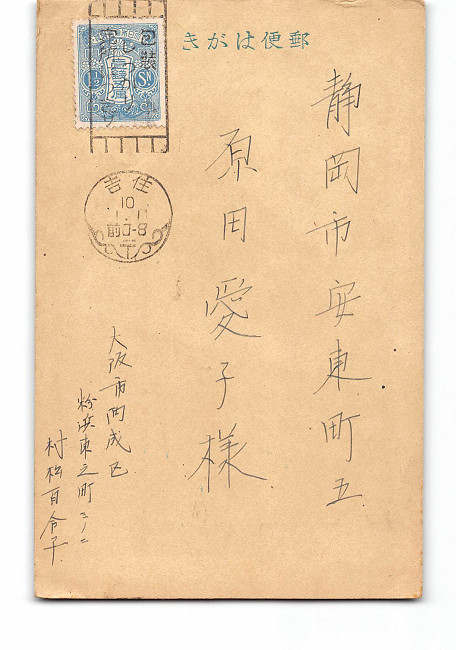 きがは便郵
1½ Sn
住吉
10
1.1
前0-8
静岡市安東町五
原田愛子様
大阪市西成区
粉浜東之町三ノ二
村松百合子